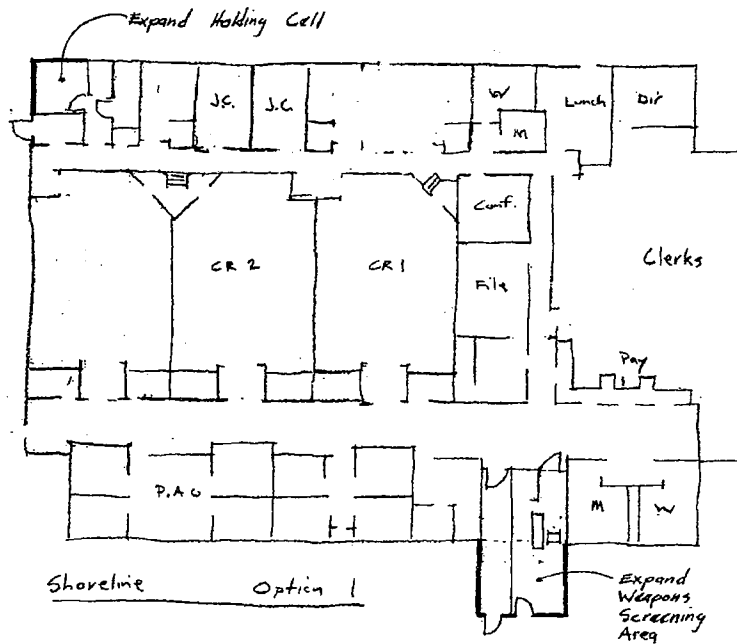 Expand Holding Cell
J.C.
J.C.
W
M
Lunch
Dir
Conf.
CR 2
CR 1
Clerks
File
Pay
P.A.O
M
W
Shoreline Option 1
Expand
Weapons
Screening
Area